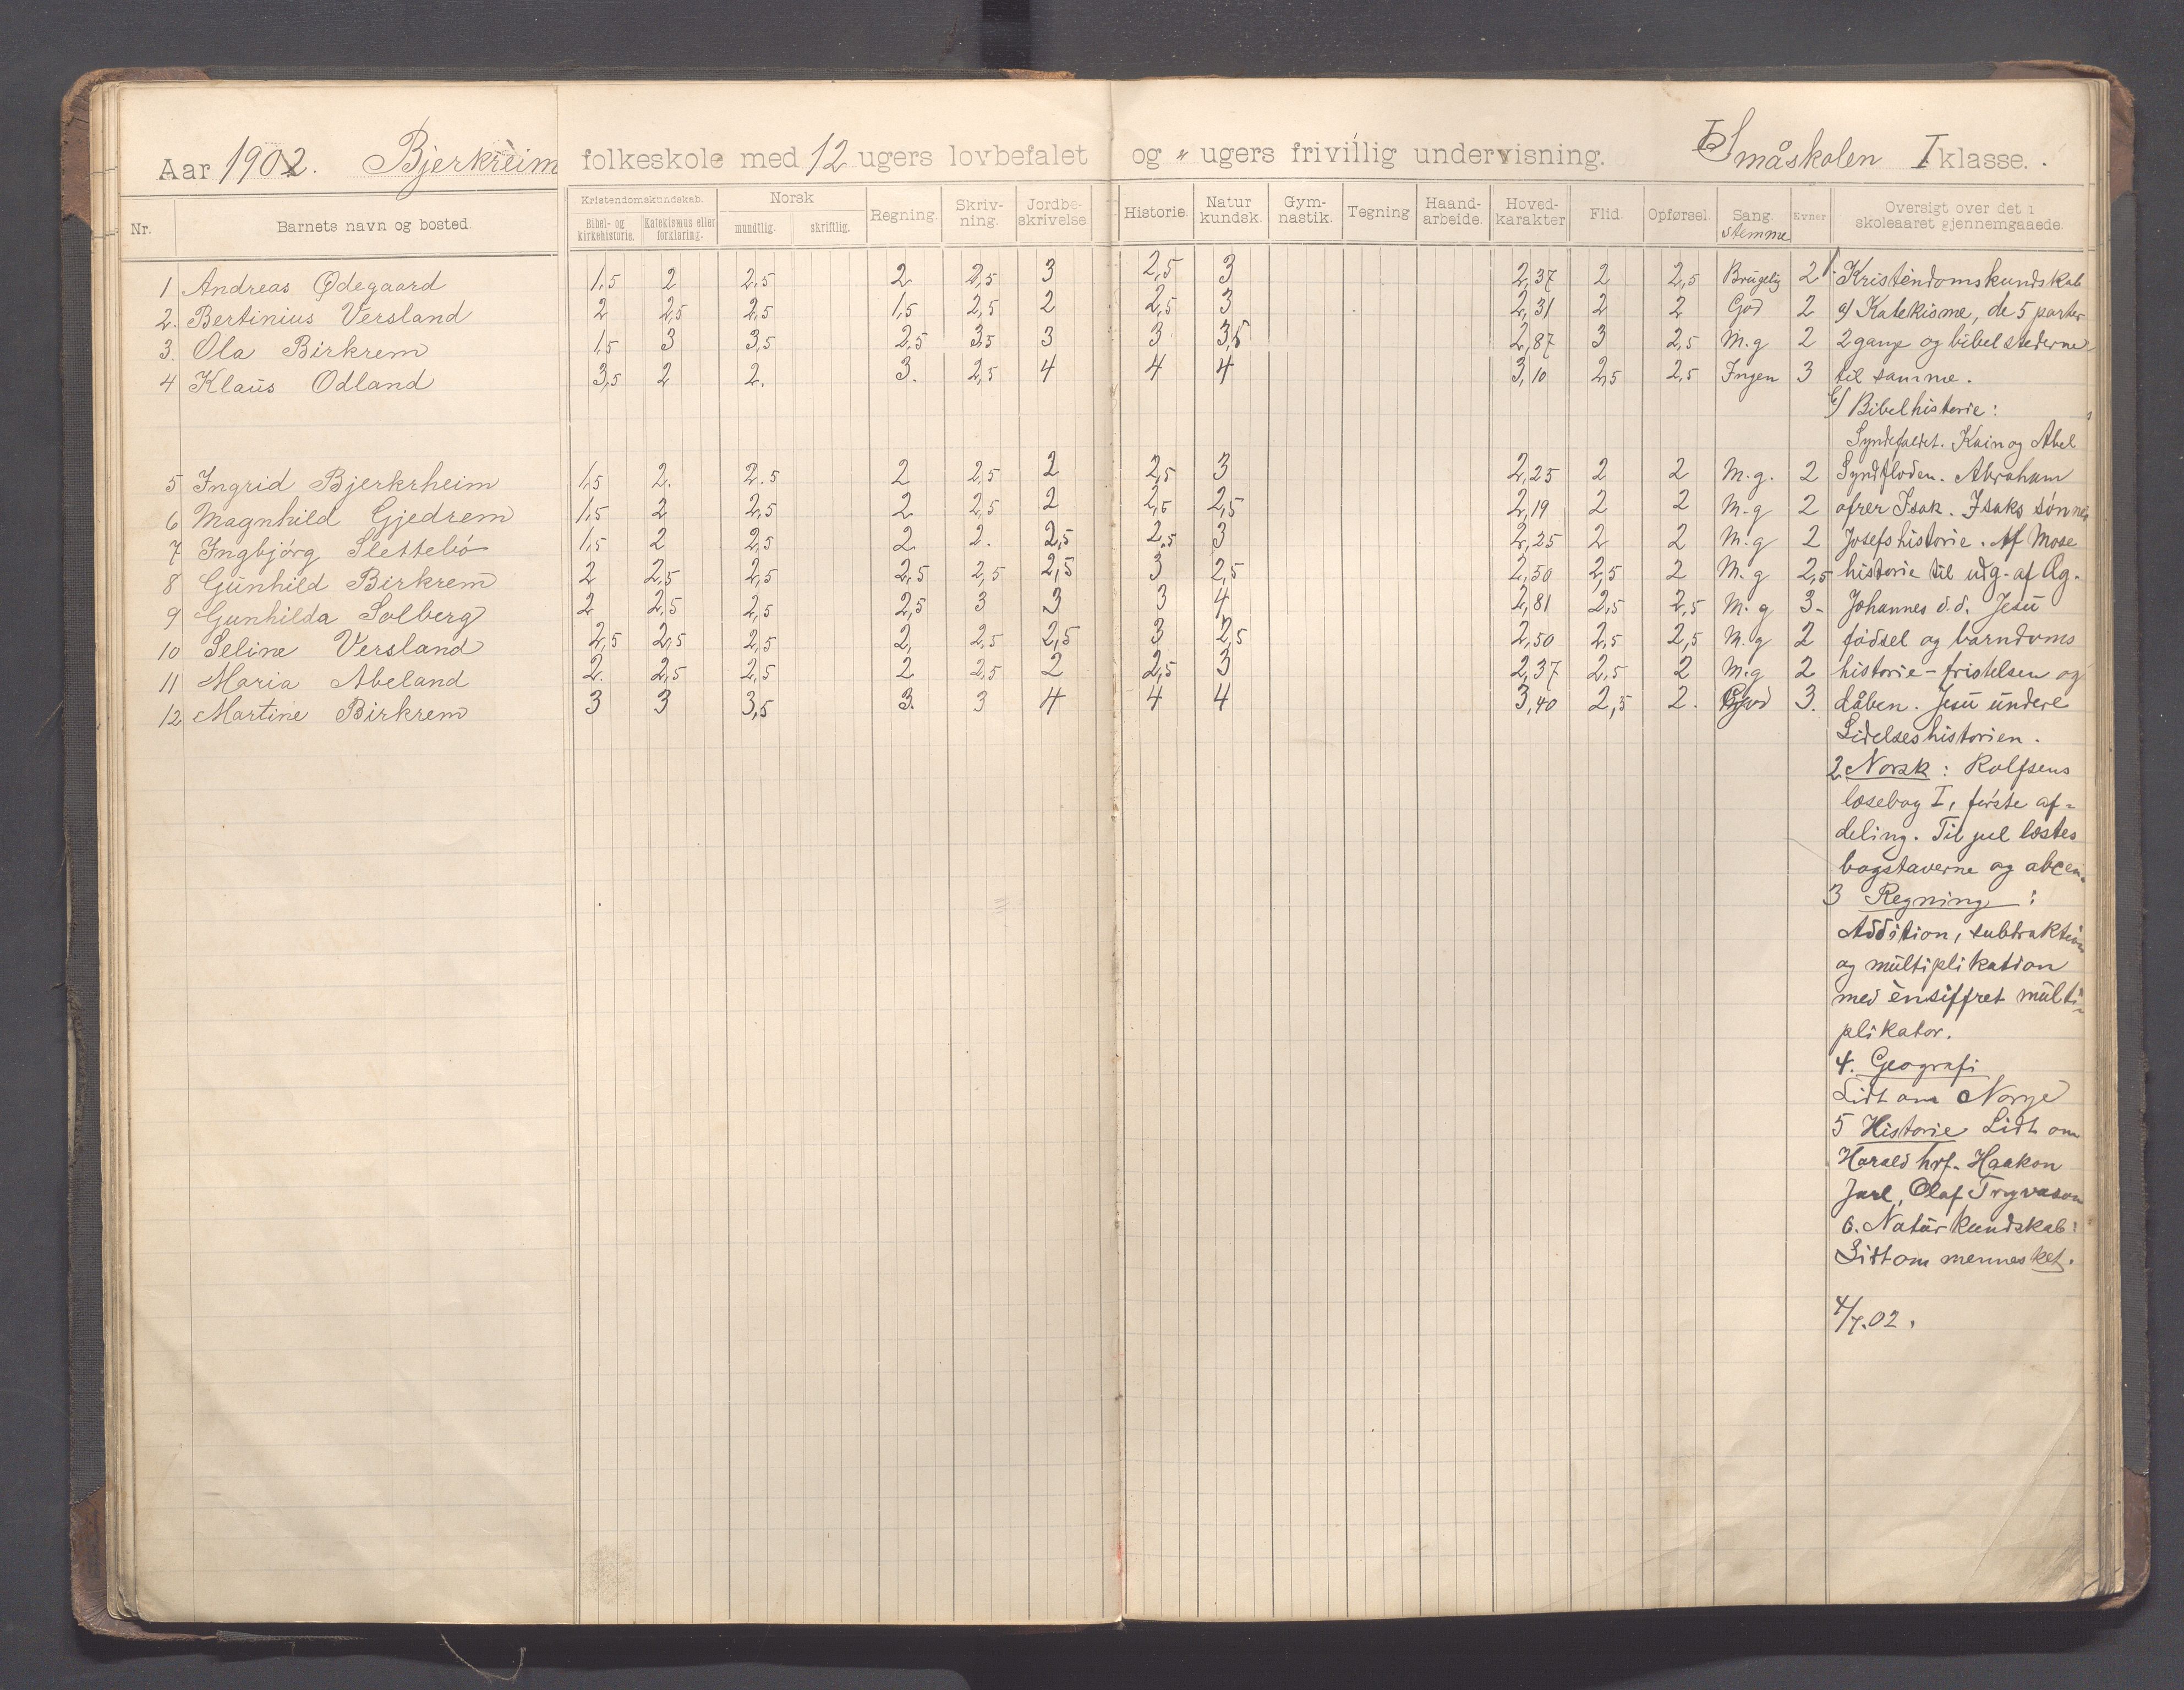 Aar 1902. Bjerkreim folkeskole med 12 ugers lovbefalet og " ugers frivillig undervisning. Småskolen I klasse.
Nr. Barnets navn og bosted. Kristendomskundskab. Bibel- og kirkehistorie. Katekismus eller forklaring. Norsk mundtlig. skriftlig. Regning. Skriv-ning. Jordbe-skrivelse Historie. Natur kundsk. Gym-nastik. Tegning Haand-arbeide. Hoved-karakter Flid. Opførsel. Sang. stemme Evner Oversigt over det i skoleaaret gjennemgaaede.
1 Andreas Ødegaard 1,5 2 2,5 2 2,5 3 2,5 3 2,37 2 2,5 Brugelig 2 1. Kristendomskundskab
2. Bertinius Versland 2 2,5 2,5 1,5 2,5 2 2,5 3 2,31 2 2 God 2 a) Katekisme, de 5 parter
3. Ola Birkrem 1,5 3 3,5 2,5 3,5 3 3 3,5 2,87 3 2,5 M.g 2 2 gange og bibelstederne
4 Klaus Odland 3,5 2 2. 3. 2,5 4 4 4 3,10 2,5 2,5 Ingen 3 til samme.
b) Bibelhistorie:
Syndefaldet. Kain og Abel
5 Ingrid Bjerkrheim 1,5 2. 2,5 2 2,5 2 2,5 3 2,25 2 2 M.g. 2 Syndfloden. Abraham
6 Magnhild Gjedrem 1,5 2 2,5 2 2,5 2 2,5 2,5 2,19 2 2 M.g 2 ofrer Isak. Isaks sønner
7 Ingbjórg Slettebó 1,5 2 2,5 2 2. 2,5 2,5 3 2,25 2 2 M.g 2 Josefs historie. Af Mose
8 Gunhild Birkrem 2 2,5 2,5 2,5 2,5 2,5 3 2,5 2,50 2,5 2 M.g 2,5 historie til udg. af Æg.
9 Gunhilda Solberg 2 2,5 2,5 2,5 3 3 3 4 2,81 2,5 2,5 M.g 3- Johannes d.d. Jesu
10 Seline Versland 2,5 2,5 2,5 2, 2,5 2,5 3 2,5 2,50 2,5 2,5 M.g 2 fødsel og barndoms
11 Maria Abeland 2. 2,5 2,5 2 2,5 2 2,5 3 2,37 2,5 2 M.g 2 historie - fristelsen og
12 Martine Birkrem 3 3 3,5 3. 3 4 4 4 3,40 2,5 2. God 3. dåben. Jesu undere
Lidelseshistorien.
2 Norsk: Rolfsens
læsebog I, første af-
deling. Til jul læstes
bogstaverne og abcen.
3 Regning:
Addition, subtraktion
og multiplikation
med ènsiffret multi-
plikator.
4. Geografi
Lidt om Norge
5 Historie Lidt om
Harald hrf. Haakon
Jarl, Olaf Trygvason
6. Naturkundskab:
Lidt om mennesket.
4/7.02.